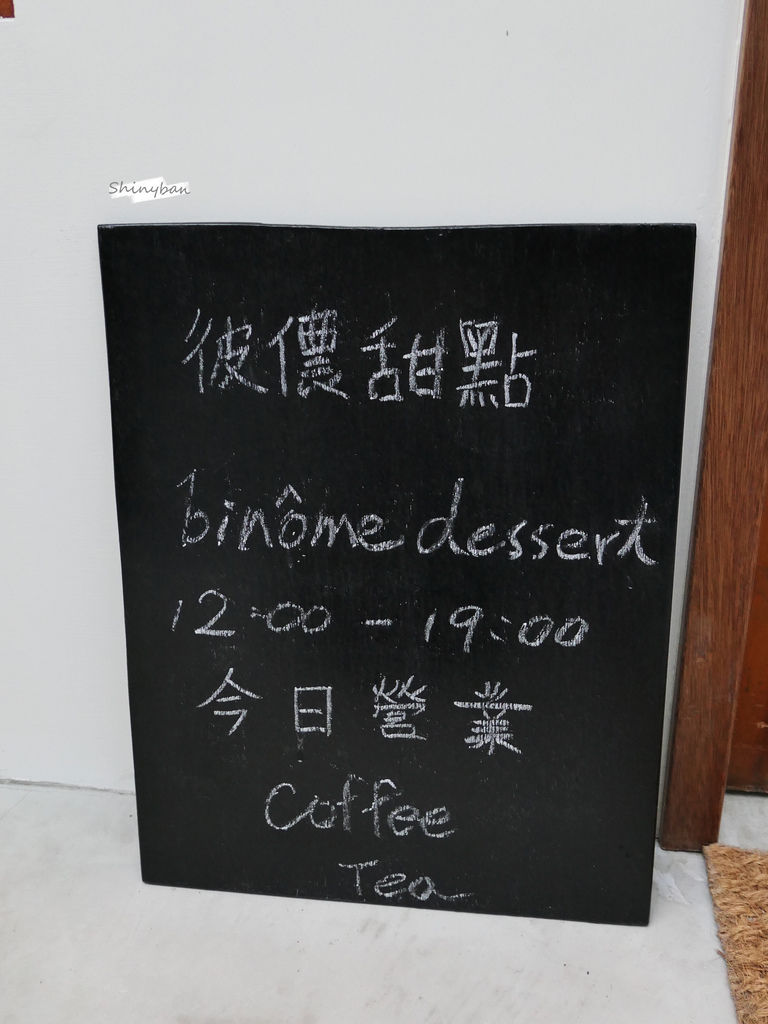 Shinyban
彼儂甜點
binôme dessert
12:00 - 19:00
今日營業
Coffee
Tea